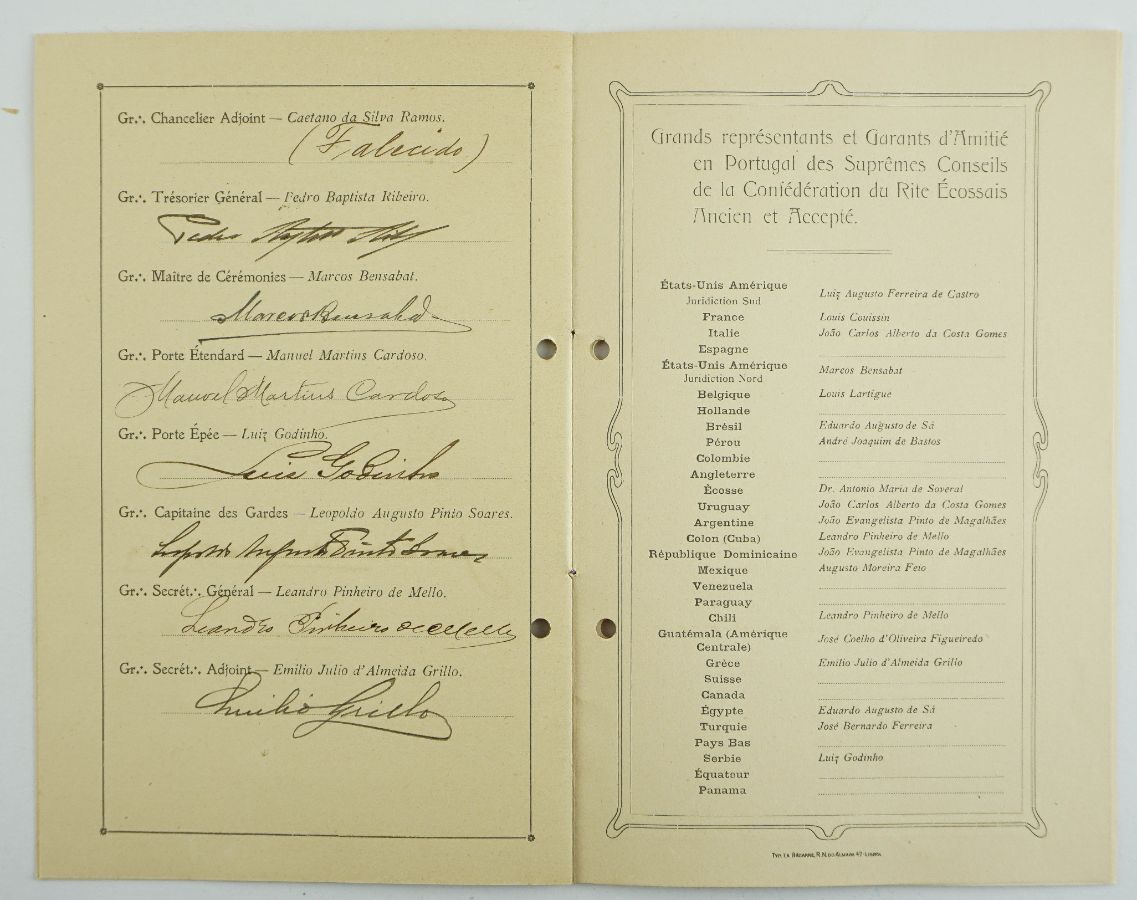 Gr∴ Chancelier Adjoint — Caetano da Silva Ramos.
(Falecido)
Gr∴ Trésorier Général — Pedro Baptista Ribeiro.
Pedro
Gr∴ Maître de Cérémonies — Marcos Bensabat.
Marcos Bensabat
Gr∴ Porte Étendard — Manuel Martins Cardoso.
Manoel Martins Cardoso
Gr∴ Porte Épée — Luiz Godinho.
Luis Godinho
Gr∴ Capitaine des Gardes — Leopoldo Augusto Pinto Soares.
Leopoldo Augusto Pinto Soares
Gr∴ Secrét∴ Général — Leandro Pinheiro de Mello.
Leandro Pinheiro de Mello
Gr∴ Secrét∴ Adjoint — Emilio Julio d'Almeida Grillo.
Emilio Grillo
Grands représentants et Garants d'Amitié
en Portugal des Suprêmes Conseils
de la Confédération du Rite Écossais
Ancien et Accepté.
États-Unis Amérique
Juridiction Sud Luiz Augusto Ferreira de Castro
France Louis Couissin
Italie João Carlos Alberto da Costa Gomes
Espagne
États-Unis Amérique
Juridiction Nord Marcos Bensabat
Belgique Louis Lartigue
Hollande
Brésil Eduardo Augusto de Sá
Pérou André Joaquim de Bastos
Colombie
Angleterre
Écosse Dr. Antonio Maria de Soveral
Uruguay João Carlos Alberto da Costa Gomes
Argentine João Evangelista Pinto de Magalhães
Colon (Cuba) Leandro Pinheiro de Mello
République Dominicaine João Evangelista Pinto de Magalhães
Mexique Augusto Moreira Feio
Venezuela
Paraguay
Chili Leandro Pinheiro de Mello
Guatémala (Amérique
Centrale) José Coelho d'Oliveira Figueiredo
Grèce Emilio Julio d'Almeida Grillo
Suisse
Canada
Égypte Eduardo Augusto de Sá
Turquie José Bernardo Ferreira
Pays Bas
Serbie Luiz Godinho
Équateur
Panama
TYP. LA BÉCARRE, R. N. DO ALMADA 47-LISBOA